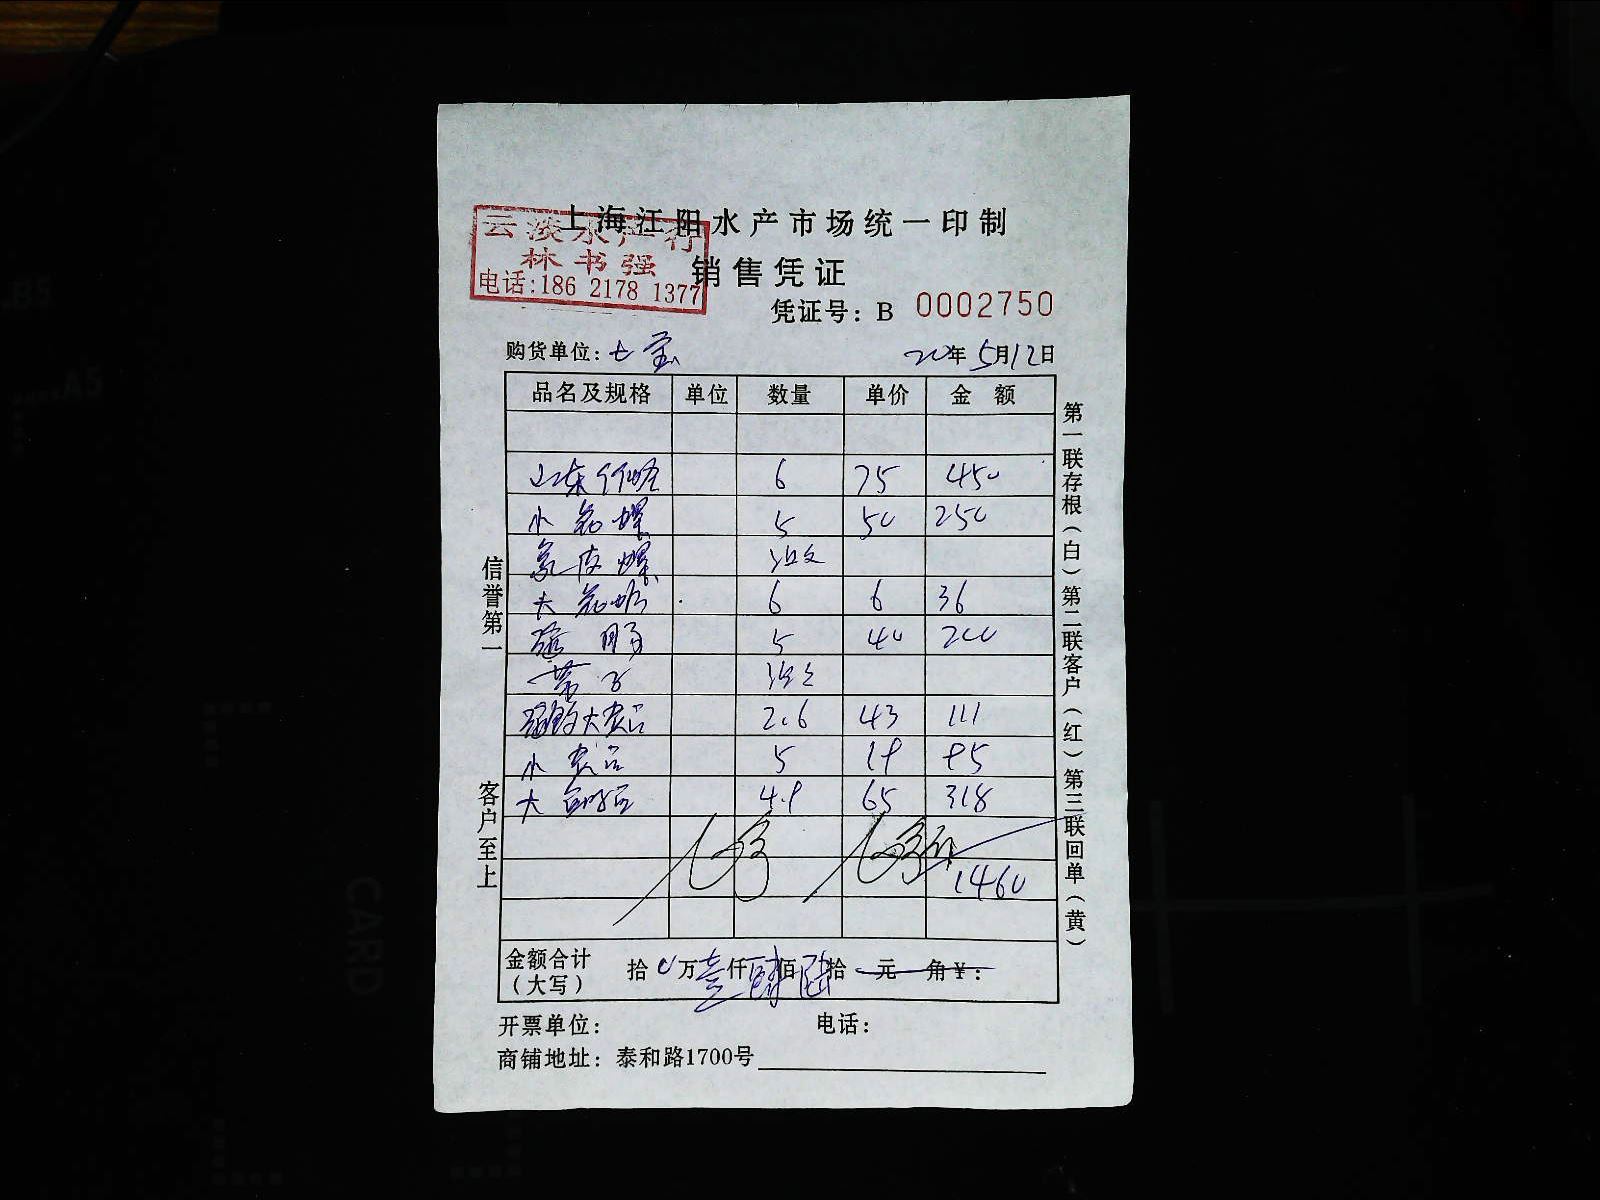 上海江阳水产市场统一印制
云淡水产行
林书强
电话:186 2178 1377
销售凭证
凭证号: B 0002750
购货单位: 七宝 20年5月12日
品名及规格 单位 数量 单价 金额
山东 6 75 450
小花螺 5 50 250
象皮螺 没
大花蛤 6 6 36
5 40 200
带子 没
大 2.6 43 111
小 5 19 95
大 4.9 65 318
1460
金额合计(大写) 拾0万壹仟肆佰陆拾元角¥:
开票单位: 电话:
商铺地址: 泰和路1700号
信誉第一 客户至上
第一联存根(白)第二联客户(红)第三联回单(黄)
B5
A5
CARD